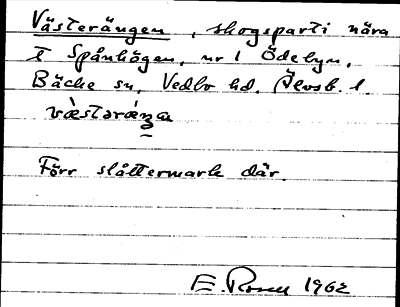 Västerängen, skogsparti nära
T Spånhögen, nr 1 Ödebyn,
Bäcke sn, Vedbo hd, Älvsb. l.
Förr slåttermark där.
E. Rosell 1962